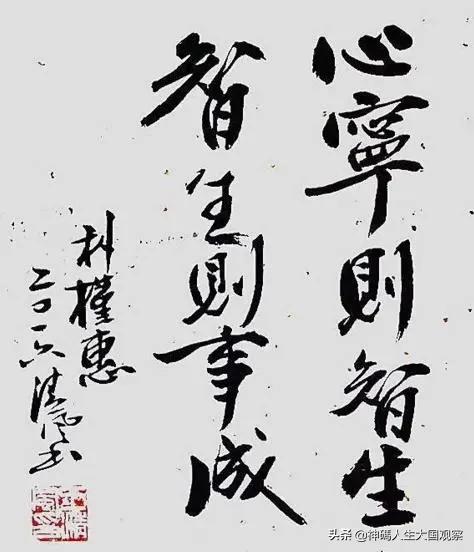 心寧則智生
智生則事成
朴槿惠
二〇一六
头条 @神碼人生大国观察